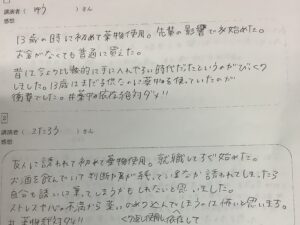 講演者( ゆう )さん
感想
13歳の時に初めて薬物使用。先輩の影響で始めた。
お金がなくても普通に買えた。
昔は今より比較的に手に入れやすい時代だったというのがびっくり
しました。13歳はまだ子供なのに薬物を使っていたのが
衝撃でした。#薬物依存絶対ダメ!!
2
講演者( こたろう )さん
感想
友人に誘われて初めて薬物使用。就職しすぐ始めた。
お酒を飲んでいて判断力が鈍っているなか誘われてしまったら
自分も誘いに乗ってしまうかもしれないと思いました。
ストレスや心の不満から薬にのめり込んでしまうのは怖いと思います。
#薬物絶対ダメ!!